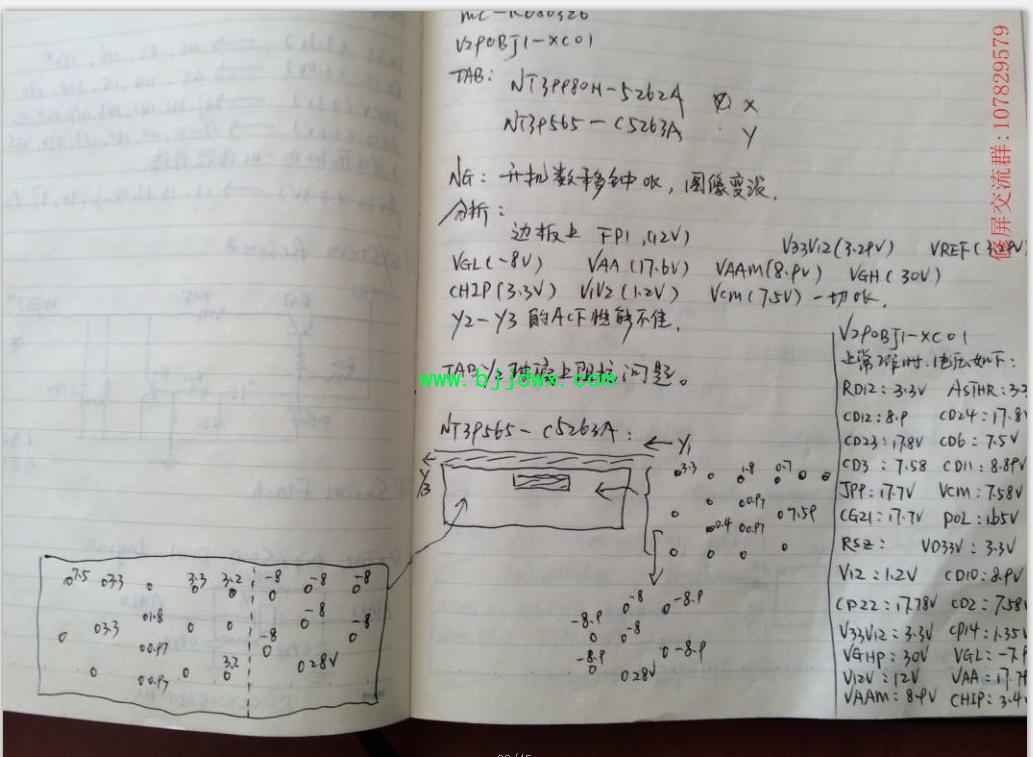 V290BJ1-XC01
TAB:
NT39980H-5262A X
NT39565-C5263A Y
NG: 开机数秒钟OK，图像变淡.
分析:
边板上 FP1 (12V)
V33V12(3.29V) VREF(3.29V
VGL(-8V) VAA(17.6V) VAAM(8.9V) VGH(30V)
CHIP(3.3V) V1V2(1.2V) Vcm(7.5V) 一切OK.
Y2-Y3的AC下性能不佳.
TAB 问题。
www.bjjdwx.com
NT39565-C5263A:
Y1
Y3
3.3 1.8 0.7
0.97
7.59
0.4 0.97
-8 -8.9
-8.9
-8
-8.9 -8.9
28V
7.5 3.3 3.3 3.2 -8 -8 -8
1.8 -8
3.3 -8 -8
0.97
3.2 28V
0.97
V290BJ1-XC01
正常时,电压如下:
RD12: 3.3V ASTHR: 3.3
CD12: 8.9 CD24: 17.8
CD23: 17.8V CD6: 7.5V
CD3: 7.58 CD11: 8.89V
JPP: 17.7V Vcm: 7.58V
CG21: 17.7V POL: 1.65V
RS2: VD33V: 3.3V
V12: 1.2V CD10: 8.9V
CD22: 17.78V CD2: 7.58
V33V12: 3.3V CP14: 1.35V
VGHP: 30V VGL: -7.9
V12V: 12V VAA: 17.7
VAAM: 8.9V CHIP: 3.4
修屏交流群:107829579